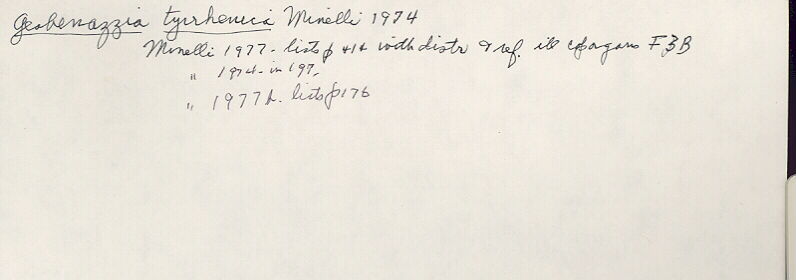 Geobenazzia tyrrhenica Minelli 1974
Minelli 1977 - lists p 414 with distr & ref. ill cop organs F 3B
" 1974 - in 197
" 1977A. lists p 176